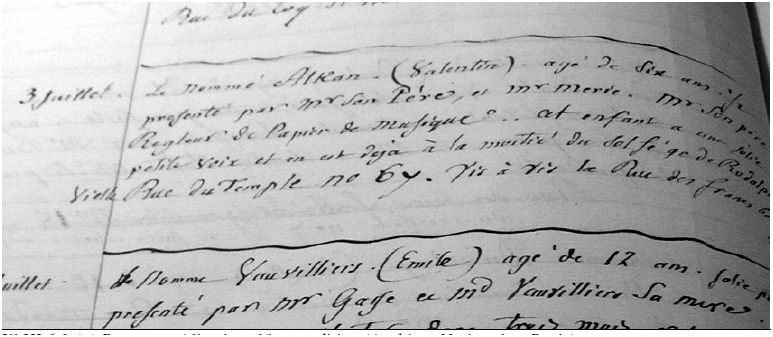 Rue du Coq St
3 Juillet. Le nommé Alkan. (Valentin) agé de six ans.
presenté par Mr son Père, et Mr Merie. Mr son père
Regleur de Papier de Musique... cet enfant a une jolie
petite voix et en est deja à la moitié du solfége de Rodolphe
Vielle Rue du Temple no 67. vis à vis la Rue des francs
Juillet. le nommé Vauvilliers. (Emile) agé de 12 ans. jolie
presenté par Mr Gasse et Md Vauvilliers Sa mere.
trois mois